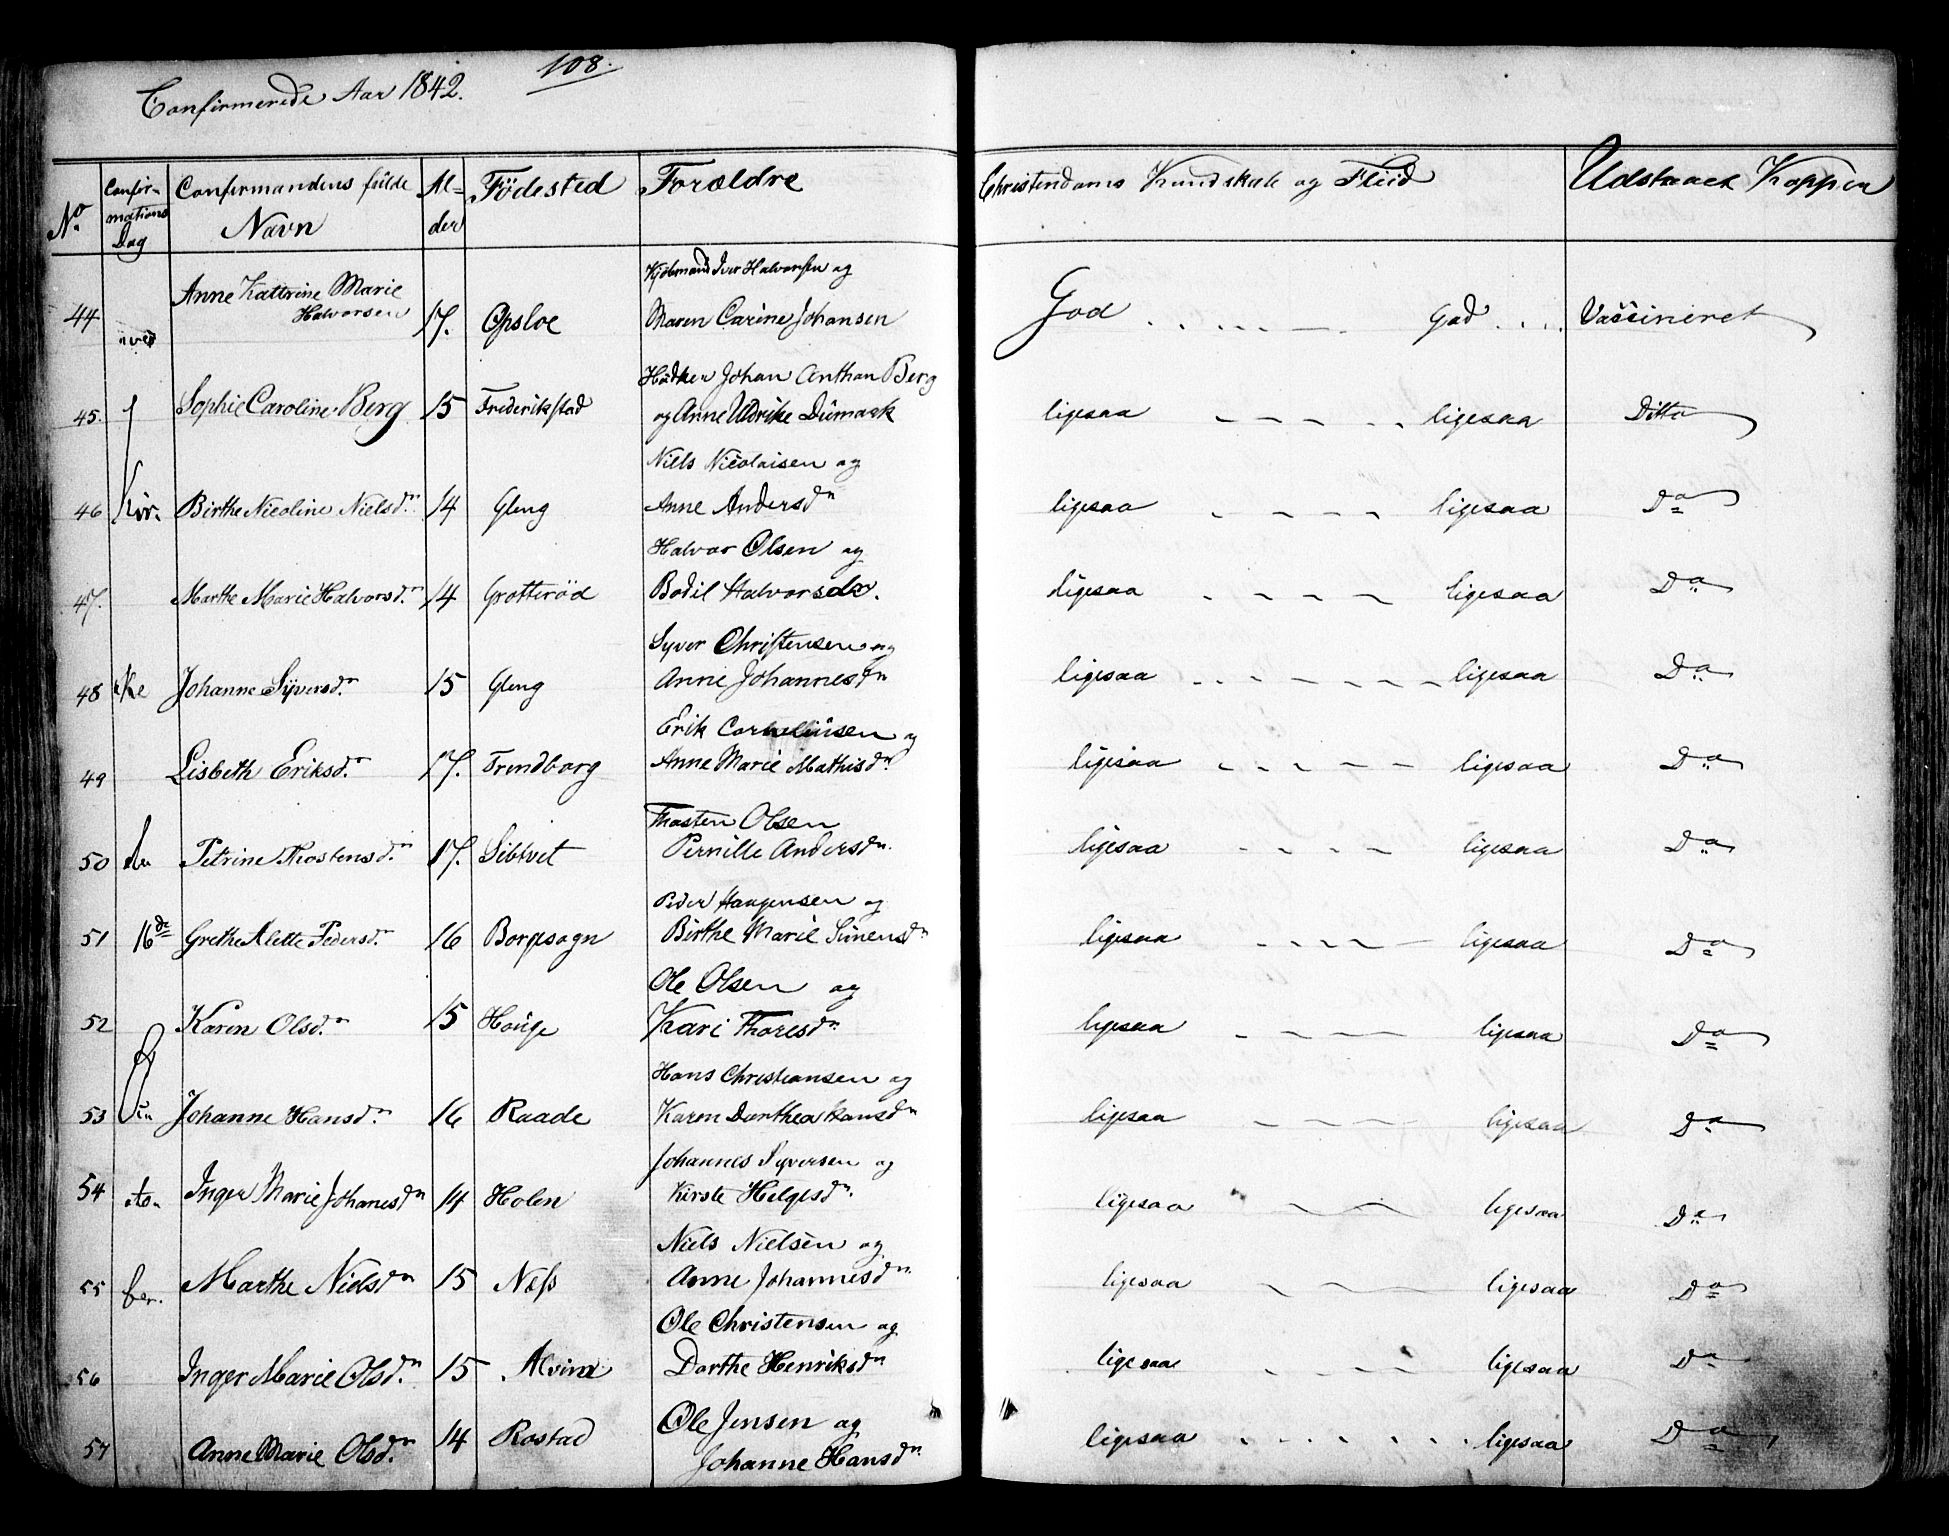 108.
Confirmerede Aar 1842.
No. Confirmations Dag Confirmandens fulde Navn Alder Födested Forældre Christendoms Kundskab og Fliid Udstaaet Kopper
Kjöbmand Iver Halvorsen og
44 ved Anne Kattrine Marie Halvorsen 17. Opsloe Maren Carine Johansen God God Vaccineret
Hödker Johan Anthan Berg
45. Sophie Caroline Berg 15 Frederikstad og Anne Uldrike Dümark ligesaa ligesaa Ditto
Niels Nicolaisen og
46 Kir- Birthe Nicoline Nielsdn 14 Gleng Anne Andersdn ligesaa ligesaa Do
Halvor Olsen og
47. Marthe Marie Halvorsdn 14 Grotteröd Bodil Halvorsdr. ligesaa ligesaa Do
Syver Christensen og
48 ke Johanne Syversdn 15 Gleng Anne Johannesdn ligesaa ligesaa Do
Erik Corneliüsen og
49 Lisbeth Eriksdn 17. Trendborg Anne Marie Mathisdn ligesaa ligesaa Do
Thosten Olsen
50 den Petrine Thostensdn 17. Sibtvet Pernille Andersdn ligesaa ligesaa Do
Peder Haagensen og
51 16de Grethe Alette Pedersdn 16 Borgesogn Birthe Marie Simensdn ligesaa ligesaa Do
Ole Olsen og
52 Karen Olsdn 15 Houge Kari Thoresdn ligesaa ligesaa Do
Hans Christiansen og
53 Johanne Hansdn 16 Raade Karen Dorthea Hansdn ligesaa ligesaa Do
Johannes Syversen og
54 Inger Marie Johanesdn 14 Holen Kirste Helgesdn ligesaa ligesaa Do
Niels Nielsen og
55 ber. Marthe Nielsdn 15 Næss Anne Johannesdn ligesaa ligesaa Do
Ole Christensen og
56 Inger Marie Olsdn 15 Alvim Dorthe Henriksdn ligesaa ligesaa Do
Ole Jensen og
57 Anne Marie Olsdn 14 Rostad Johanne Hansdn ligesaa ligesaa Do